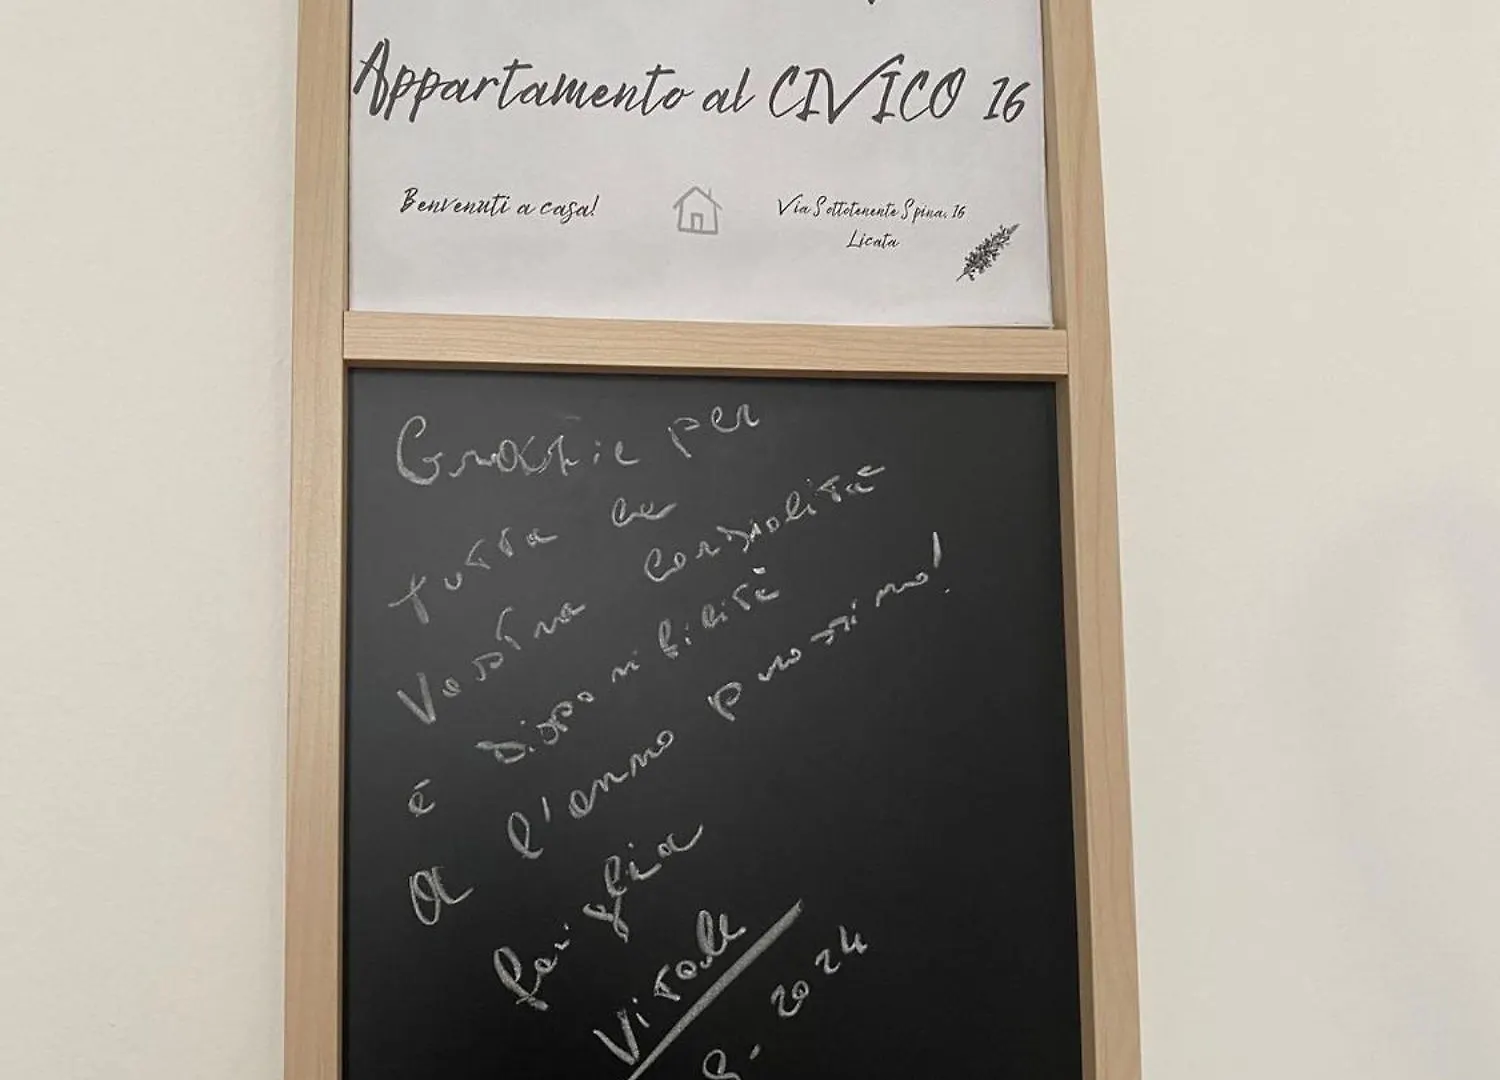 Appartamento al CIVICO 16
Benvenuti a casa!
Via Sottotenente Spina, 16
Licata
Grazie per
tutta la
Vostra cordialità
e disponibilità
a l'anno prossimo!
famiglia
Vitale
8. 2024